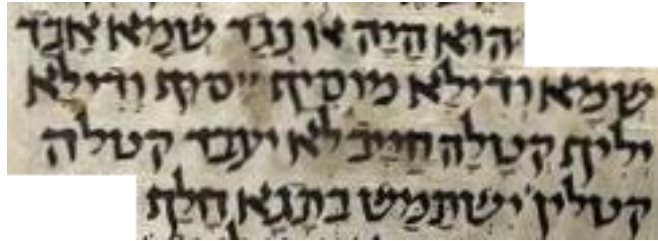 הוא היה או נגד שמא אבד
שמא ודילא מוסיף ייסוף ודילא
יליף קטלה חייב לא יעבד קטלה
קטלין ישתמש בתגא חלף